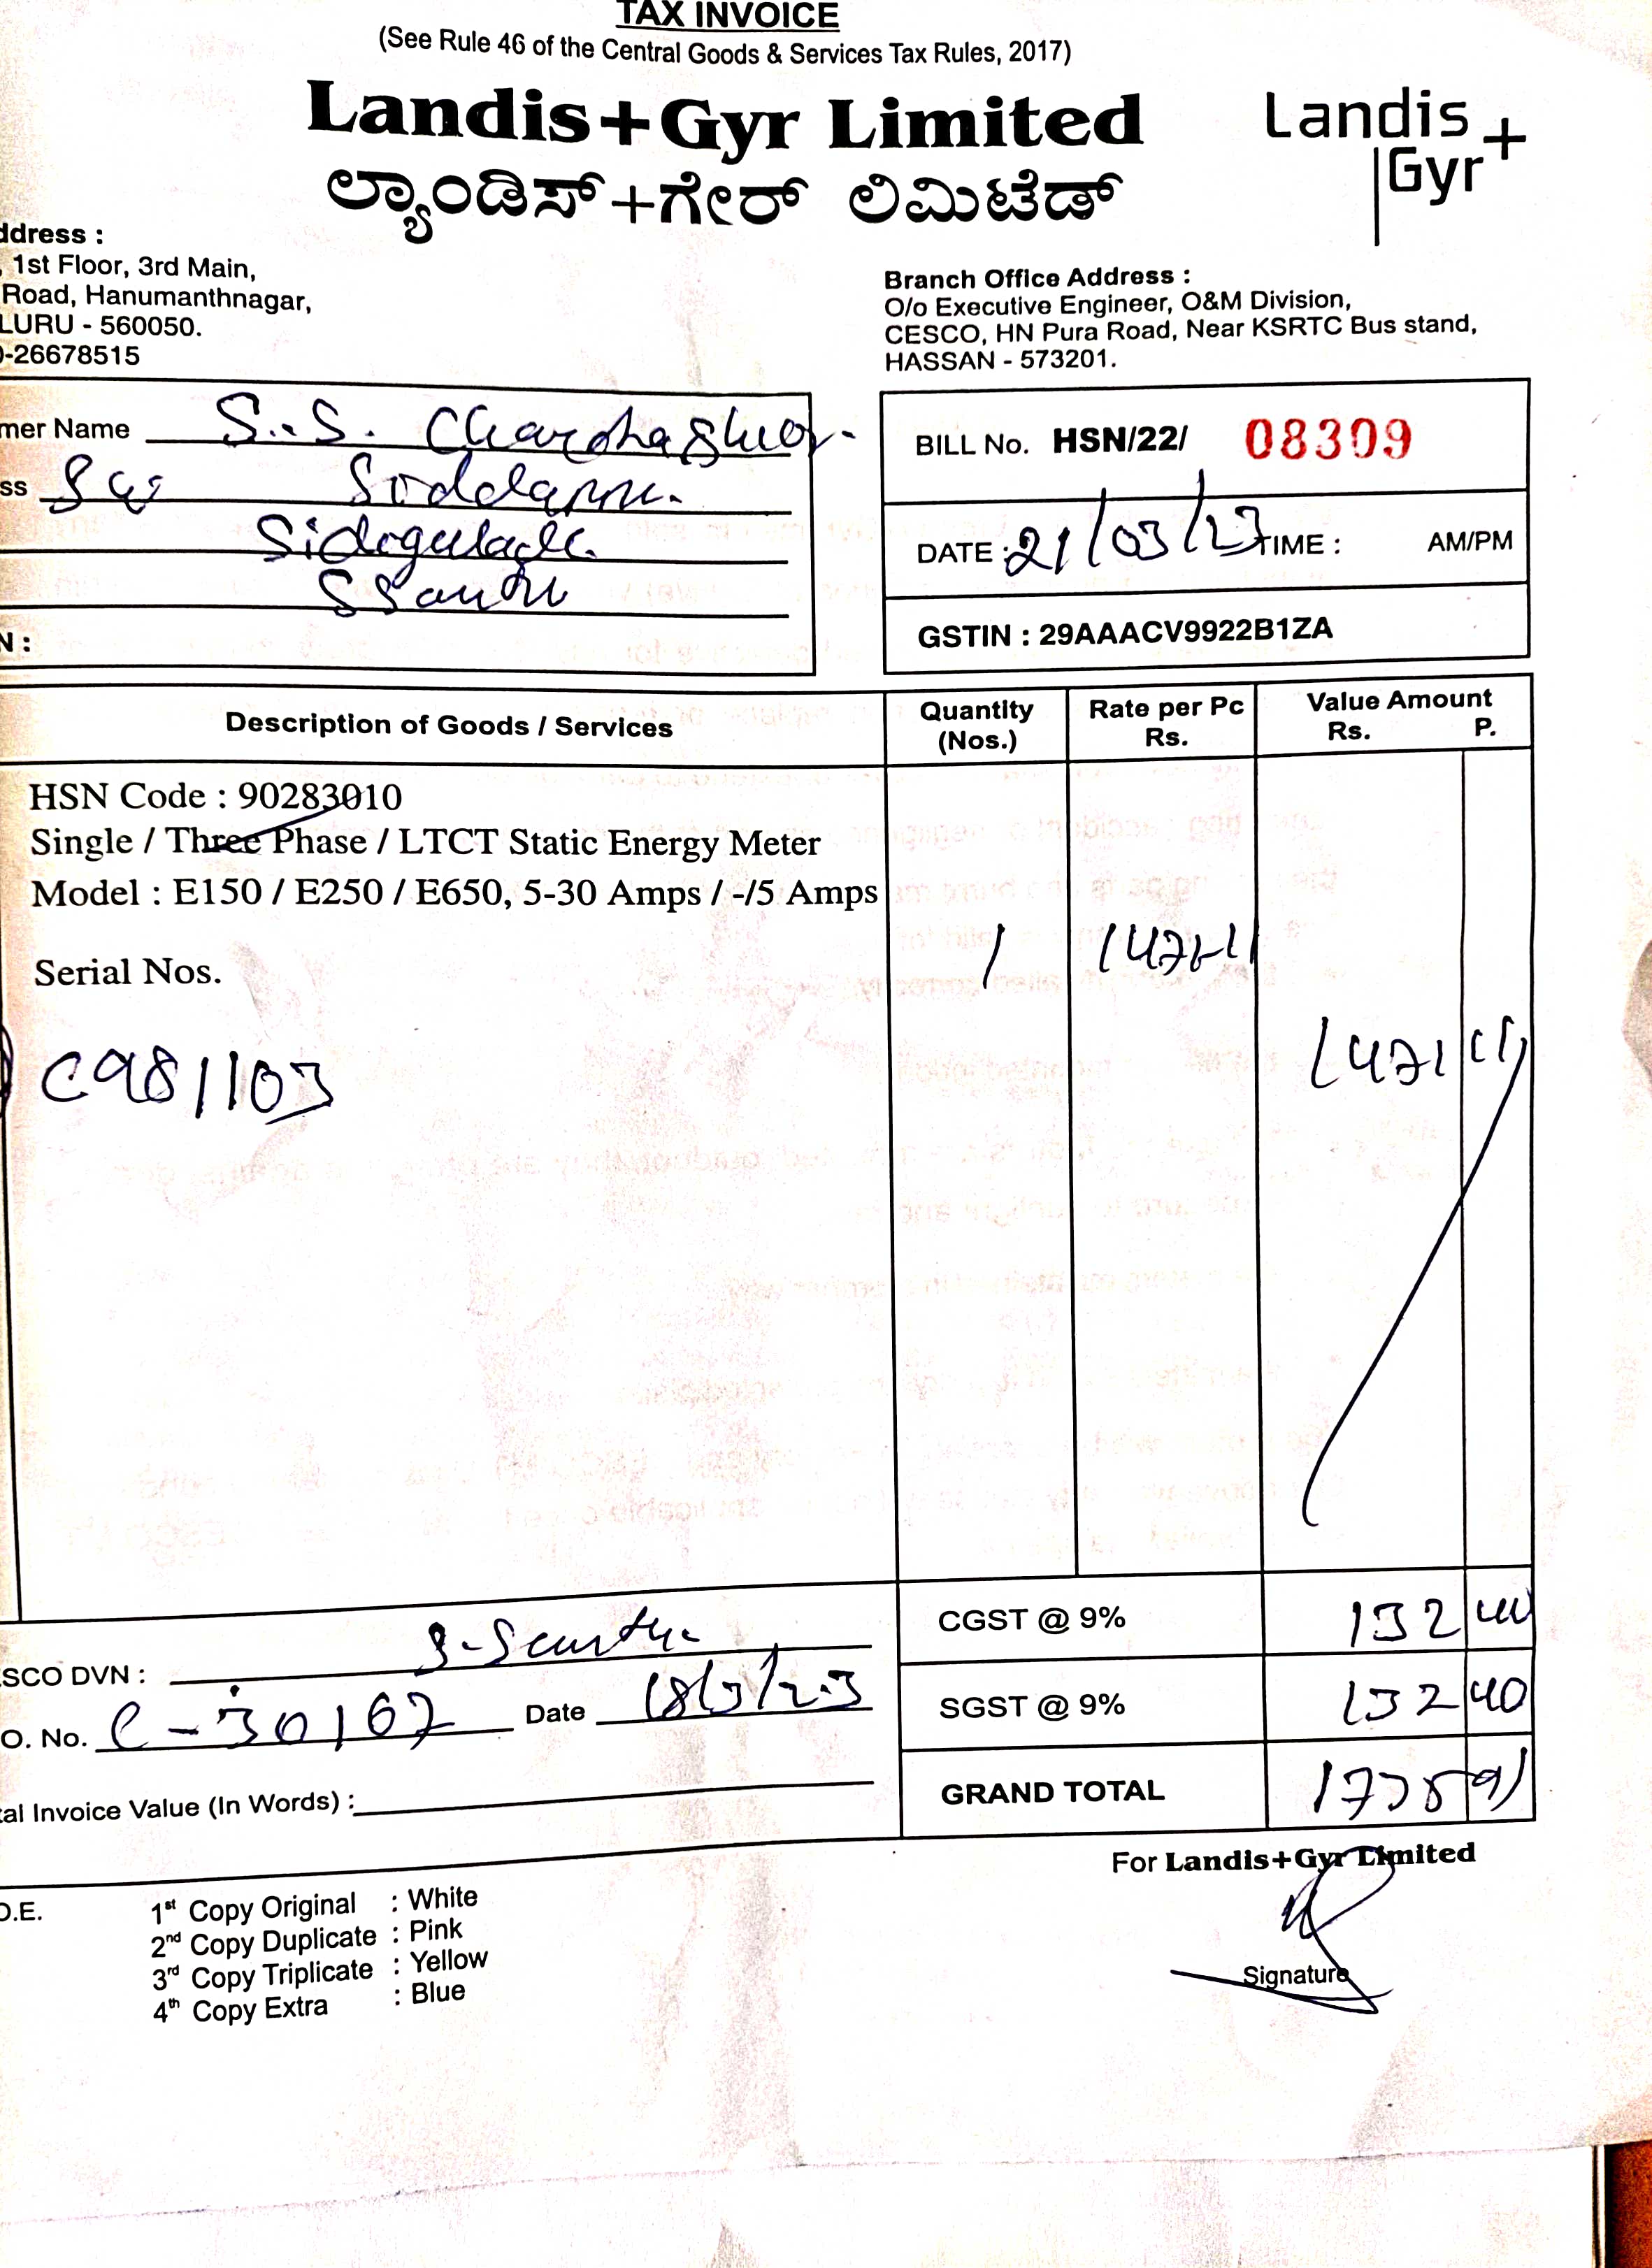 TAX INVOICE
(See Rule 46 of the Central Goods & Services Tax Rules, 2017)
Landis+Gyr Limited
ಲ್ಯಾಂಡಿಸ್+ಗೇರ್ ಲಿಮಿಟೆಡ್
Landis+
Gyr
ddress :
1st Floor, 3rd Main,
Road, Hanumanthnagar,
LURU - 560050.
-26678515
Branch Office Address :
O/o Executive Engineer, O&M Division,
CESCO, HN Pura Road, Near KSRTC Bus stand,
HASSAN - 573201.
mer Name S.S.
ss
N :
BILL No. HSN/22/ 08309
DATE : 21/03/23 TIME : AM/PM
GSTIN : 29AAACV9922B1ZA
Description of Goods / Services
Quantity (Nos.)
Rate per Pc Rs.
Value Amount
Rs. P.
HSN Code : 90283010
Single / Three Phase / LTCT Static Energy Meter
Model : E150 / E250 / E650, 5-30 Amps / -/5 Amps
1
Serial Nos.
1471
C981103
CGST @ 9% 132 40
SGST @ 9% 132 40
GRAND TOTAL 91
SCO DVN :
O. No. C-30167 Date 18/3/23
al Invoice Value (In Words) :
For Landis+Gyr Limited
Signature
O.E.
1st Copy Original : White
2nd Copy Duplicate : Pink
3rd Copy Triplicate : Yellow
4th Copy Extra : Blue